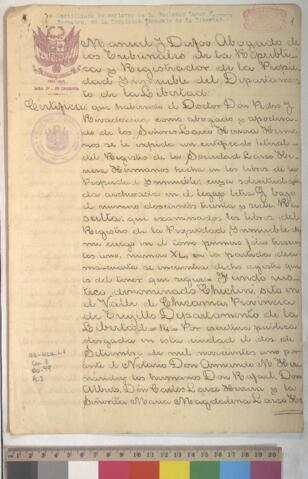 Certificado de registro de la Sociedad Larco H.
Manuel J. Dufoó Abogado de
los Tribunales de la Republi-
ca y Registrador de la Propie-
dad Inmueble del Departamen-
to de la Libertad.
Certifica: que habiendo el Doctor Don Pedro J.
Rivadeneira como abogado y apodera-
do de los Señores Larco Herrera Herma-
nos se le expida un certificado literal
del Registro de la Sociedad Larco He-
rrera Hermanos hecha en los libros de la
Propiedad Inmueble cuya solicitud que-
da archivada en el legajo letra G bajo
el numero doscientos treinta y siete Re-
sulta: que examinados los libros del
Registro de la Propiedad Inmueble de
mi cargo en el tomo primero folio trescien-
tos uno, numero XL en las partidas deci-
macuarta se encuentra dicho registro que
es del tenor que sigue: "Fundo rus-
tico denominado Chiclin sito en
el Valle de Chicama Provincia
de Trujillo Departamento de la
Libertad = 14 = Por escritura publica
otorgada en esta ciudad el dos de
Setiembre de mil novecientos uno por
ante el Notario Don Armando M. Her-
nandez los hermanos Don Rafael, Don
Alberto, Don Carlos Larco Herrera y la
Señorita Maria Magdalena Larco He-